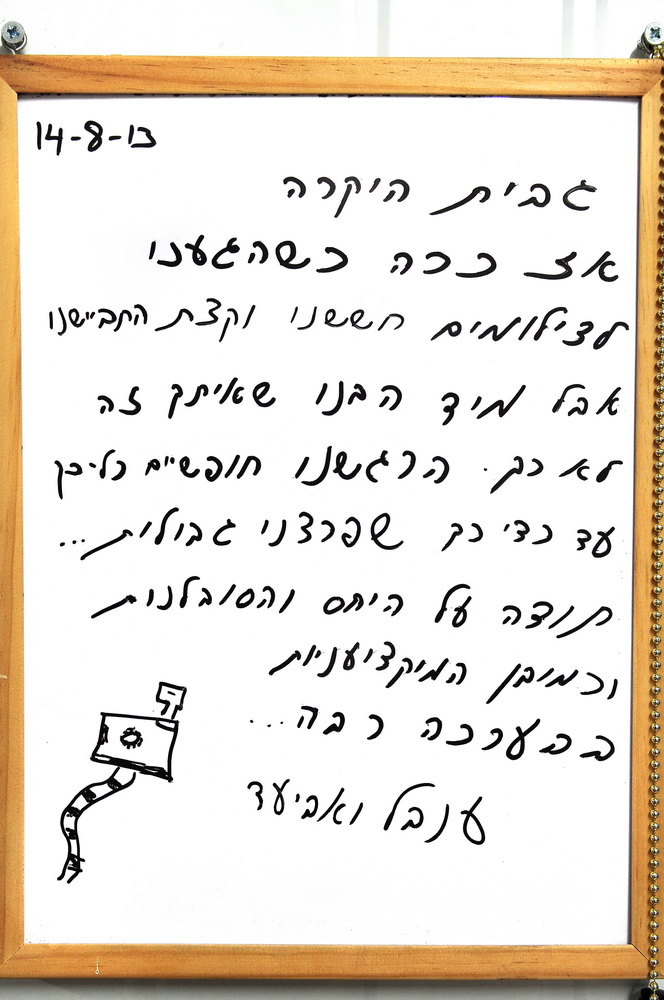 14-8-13
גבית היקרה
אז ככה כשהגענו
לצילומים חששנו וקצת התביישנו
אבל מיד הבנו שאיתך זה
לא כך. הרגשנו חופשיים כל-כך
עד כדי כך שפרצנו גבולות...
תודה על היחס והסובלנות
וכמובן המקצוענות
בהערכה רבה...
ענבל ואביעד